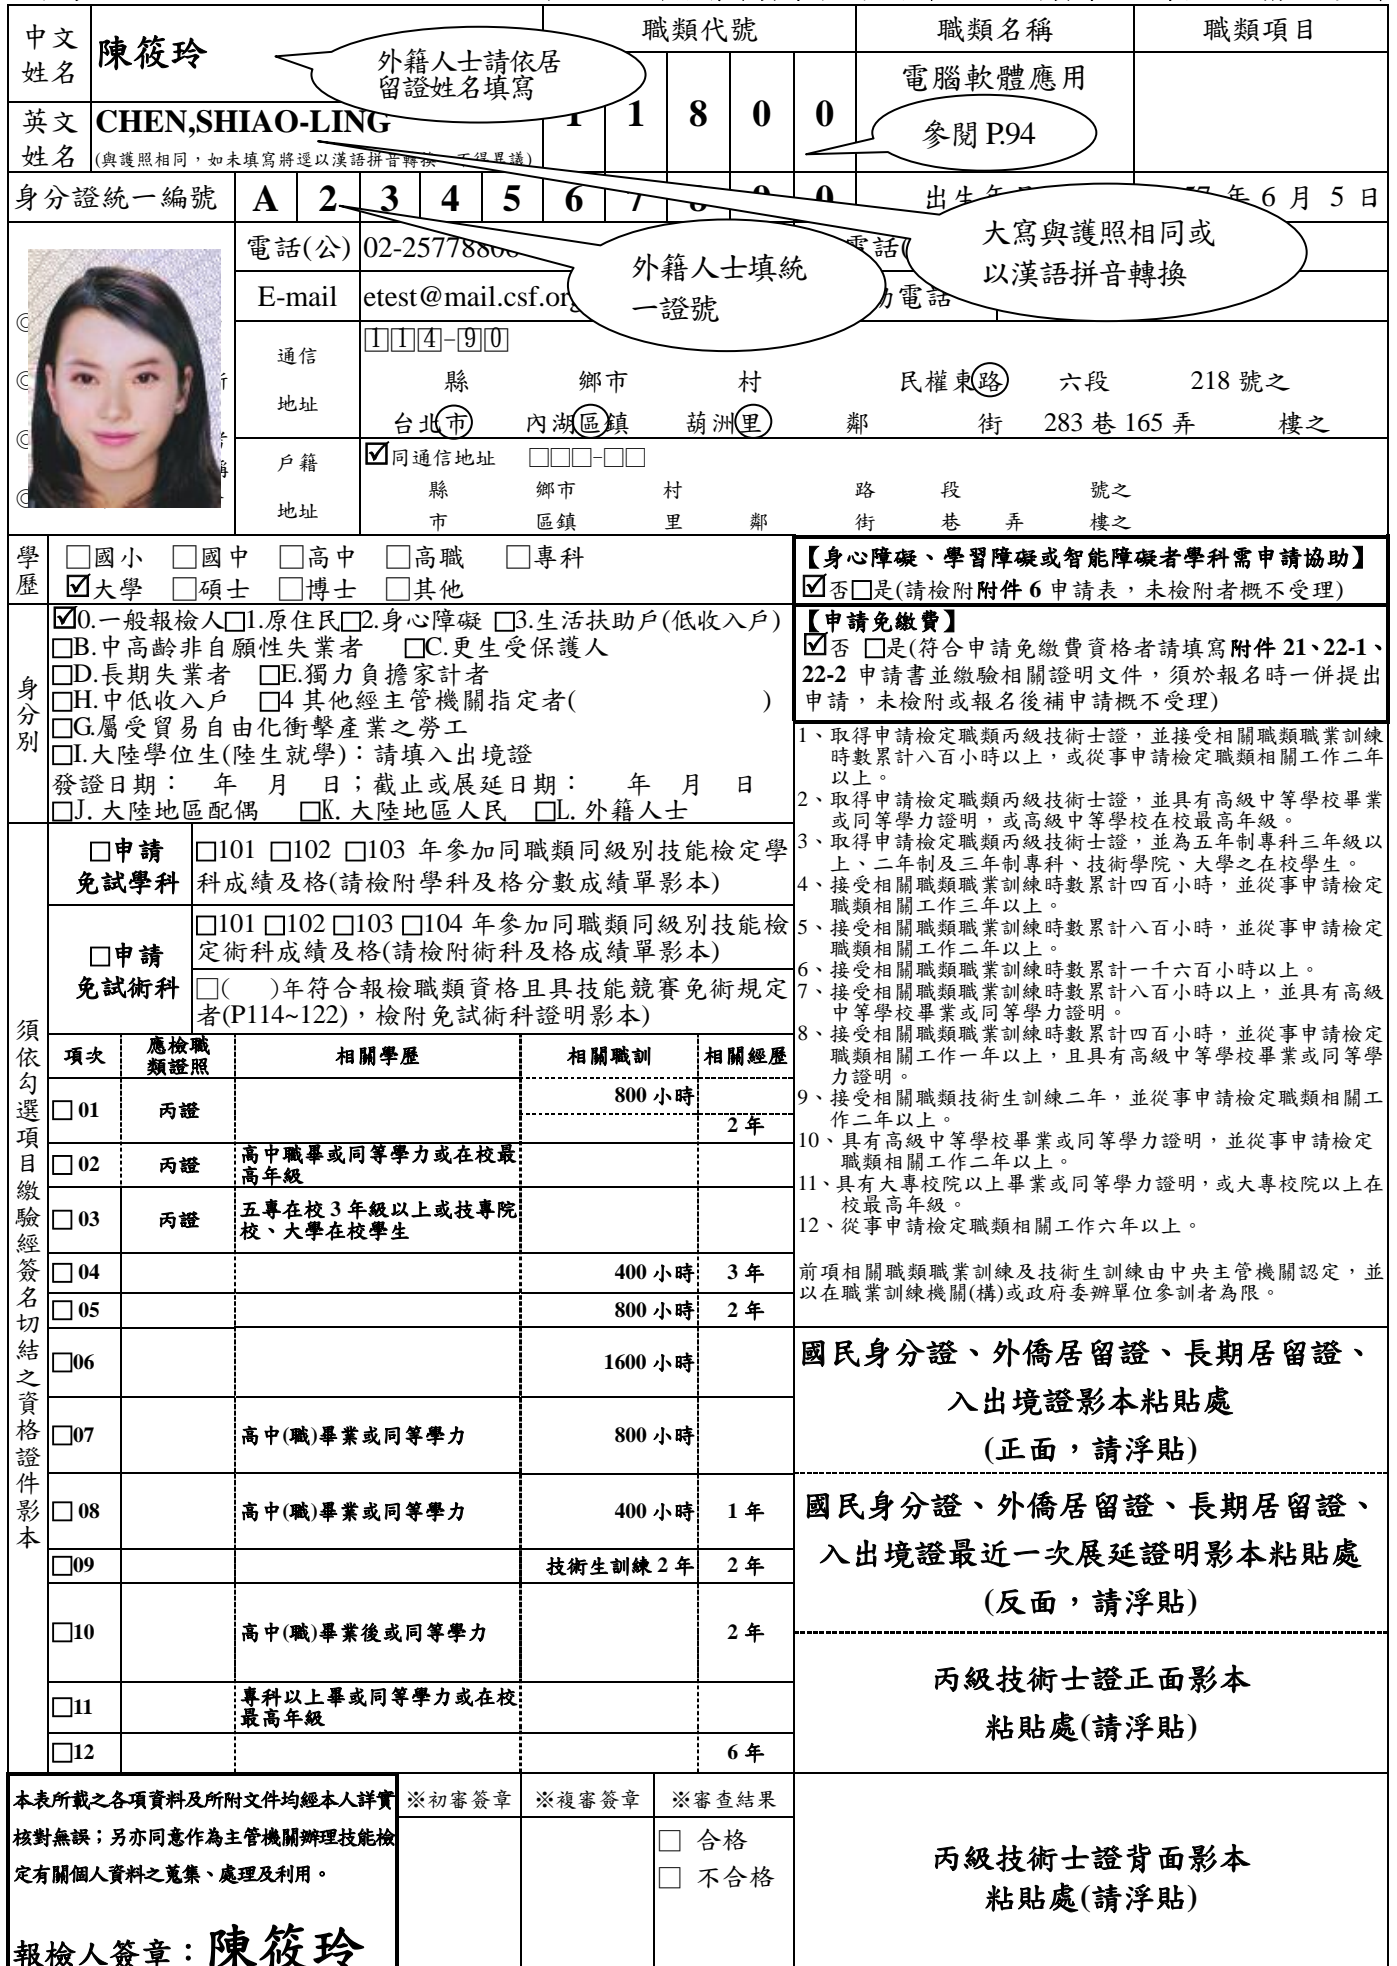 中文姓名 陳筱玲 職類代號 職類名稱 職類項目
外籍人士請依居
留證姓名填寫
1 1 8 0 0 電腦軟體應用
參閱 P.94
英文姓名 CHEN,SHIAO-LING
(與護照相同，如未填寫將逕以漢語拼音轉換，不得異議)
身分證統一編號 A 2 3 4 5 6 7 8 9 0 年 6 月 5 日
大寫與護照相同或
以漢語拼音轉換
外籍人士填統
一證號
電話(公) 02-25778
E-mail etest@mail.csf.or 電話
通信地址
114-90
縣 鄉市 村 民權東路 六段 218 號之
台北市 內湖區鎮 葫洲里 鄰 街 283 巷 165 弄 樓之
戶籍地址
☑同通信地址 □□□-□□
縣 鄉市 村 路 段 號之
市 區鎮 里 鄰 街 巷 弄 樓之
學歷
□國小 □國中 □高中 □高職 □專科
☑大學 □碩士 □博士 □其他
【身心障礙、學習障礙或智能障礙者學科需申請協助】
☑否□是(請檢附附件 6 申請表，未檢附者概不受理)
身分別
☑0.一般報檢人□1.原住民□2.身心障礙 □3.生活扶助戶(低收入戶)
□B.中高齡非自願性失業者 □C.更生受保護人
□D.長期失業者 □E.獨力負擔家計者
□H.中低收入戶 □4 其他經主管機關指定者( )
□G.屬受貿易自由化衝擊產業之勞工
□I.大陸學位生(陸生就學)：請填入出境證
發證日期： 年 月 日；截止或展延日期： 年 月 日
□J.大陸地區配偶 □K.大陸地區人民 □L.外籍人士
【申請免繳費】
☑否 □是(符合申請免繳費資格者請填寫附件 21、22-1、
22-2 申請書並繳驗相關證明文件，須於報名時一併提出
申請，未檢附或報名後補申請概不受理)
須依勾選項目繳驗經簽名切結之資格證件影本
□申請
免試學科
□101 □102 □103 年參加同職類同級別技能檢定學
科成績及格(請檢附學科及格分數成績單影本)
□申請
免試術科
□101 □102 □103 □104 年參加同職類同級別技能檢
定術科成績及格(請檢附術科及格成績單影本)
□( )年符合報檢職類資格且具技能競賽免術規定
者(P114~122)，檢附免試術科證明影本)
項次 應檢職類證照 相關學歷 相關職訓 相關經歷
□ 01 丙證 800 小時
2 年
□ 02 丙證 高中職畢或同等學力或在校最
高年級
□ 03 丙證 五專在校 3 年級以上或技專院
校、大學在校學生
□ 04 400 小時 3 年
□ 05 800 小時 2 年
□06 1600 小時
□07 高中(職)畢業或同等學力 800 小時
□ 08 高中(職)畢業或同等學力 400 小時 1 年
□09 技術生訓練 2 年 2 年
□10 高中(職)畢業後或同等學力 2 年
□11 專科以上畢或同等學力或在校
最高年級
□12 6 年
1、取得申請檢定職類丙級技術士證，並接受相關職類職業訓練
時數累計八百小時以上，或從事申請檢定職類相關工作二年
以上。
2、取得申請檢定職類丙級技術士證，並具有高級中等學校畢業
或同等學力證明，或高級中等學校在校最高年級。
3、取得申請檢定職類丙級技術士證，並為五年制專科三年級以
上、二年制及三年制專科、技術學院、大學之在校學生。
4、接受相關職類職業訓練時數累計四百小時，並從事申請檢定
職類相關工作三年以上。
5、接受相關職類職業訓練時數累計八百小時，並從事申請檢定
職類相關工作二年以上。
6、接受相關職類職業訓練時數累計一千六百小時以上。
7、接受相關職類職業訓練時數累計八百小時以上，並具有高級
中等學校畢業或同等學力證明。
8、接受相關職類職業訓練時數累計四百小時，並從事申請檢定
職類相關工作一年以上，且具有高級中等學校畢業或同等學
力證明。
9、接受相關職類技術生訓練二年，並從事申請檢定職類相關工
作二年以上。
10、具有高級中等學校畢業或同等學力證明，並從事申請檢定
職類相關工作二年以上。
11、具有大專校院以上畢業或同等學力證明，或大專校院以上在
校最高年級。
12、從事申請檢定職類相關工作六年以上。
前項相關職類職業訓練及技術生訓練由中央主管機關認定，並
以在職業訓練機關(構)或政府委辦單位參訓者為限。
國民身分證、外僑居留證、長期居留證、
入出境證影本粘貼處
(正面，請浮貼)
國民身分證、外僑居留證、長期居留證、
入出境證最近一次展延證明影本粘貼處
(反面，請浮貼)
丙級技術士證正面影本
粘貼處(請浮貼)
丙級技術士證背面影本
粘貼處(請浮貼)
本表所載之各項資料及所附文件均經本人詳實
核對無誤；另亦同意作為主管機關辦理技能檢
定有關個人資料之蒐集、處理及利用。
報檢人簽章：陳筱玲
※初審簽章 ※複審簽章 ※審查結果
□ 合格
□ 不合格